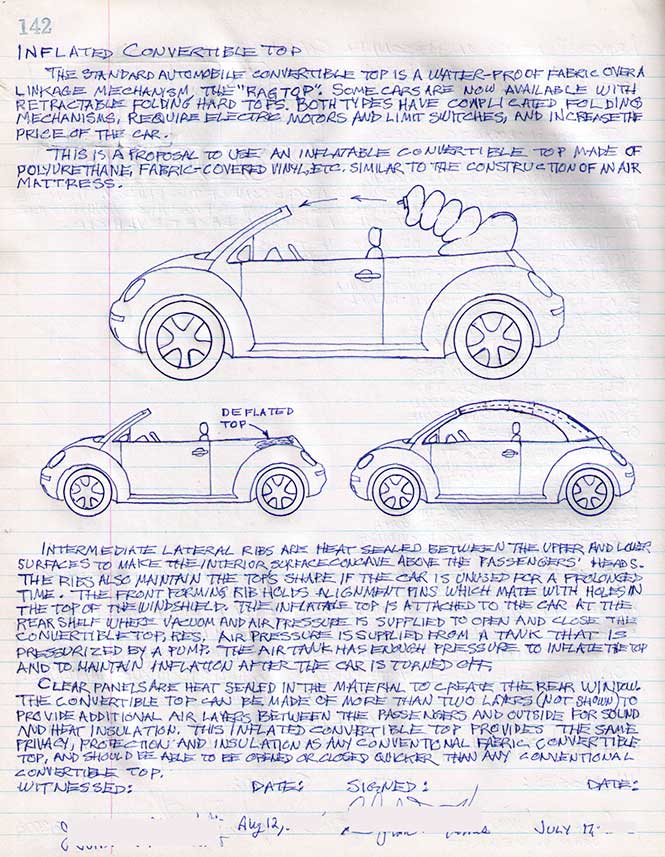 142
INFLATED CONVERTIBLE TOP
THE STANDARD AUTOMOBILE CONVERTIBLE TOP IS A WATER-PROOF FABRIC OVER A
LINKAGE MECHANISM, THE "RAGTOP". SOME CARS ARE NOW AVAILABLE WITH
RETRACTABLE FOLDING HARD TOPS. BOTH TYPES HAVE COMPLICATED FOLDING
MECHANISMS, REQUIRE ELECTRIC MOTORS AND LIMIT SWITCHES, AND INCREASE THE
PRICE OF THE CAR.
THIS IS A PROPOSAL TO USE AN INFLATABLE CONVERTIBLE TOP MADE OF
POLYURETHANE, FABRIC-COVERED VINYL, ETC. SIMILAR TO THE CONSTRUCTION OF AN AIR
MATTRESS.
DEFLATED
TOP
INTERMEDIATE LATERAL RIBS ARE HEAT SEALED BETWEEN THE UPPER AND LOWER
SURFACES TO MAKE THE INTERIOR SURFACE CONCAVE ABOVE THE PASSENGERS' HEADS.
THE RIBS ALSO MAINTAIN THE TOP'S SHAPE IF THE CAR IS UNUSED FOR A PROLONGED
TIME. THE FRONT FORMING RIB HOLDS ALIGNMENT PINS WHICH MATE WITH HOLES IN
THE TOP OF THE WINDSHIELD. THE INFLATABLE TOP IS ATTACHED TO THE CAR AT THE
REAR SHELF WHERE VACUUM AND AIR PRESSURE IS SUPPLIED TO OPEN AND CLOSE THE
CONVERTIBLE TOP, RES. AIR PRESSURE IS SUPPLIED FROM A TANK THAT IS
PRESSURIZED BY A PUMP. THE AIR TANK HAS ENOUGH PRESSURE TO INFLATE THE TOP
AND TO MAINTAIN INFLATION AFTER THE CAR IS TURNED OFF.
CLEAR PANELS ARE HEAT SEALED IN THE MATERIAL TO CREATE THE REAR WINDOW.
THE CONVERTIBLE TOP CAN BE MADE OF MORE THAN TWO LAYERS (NOT SHOWN) TO
PROVIDE ADDITIONAL AIR LAYERS BETWEEN THE PASSENGERS AND OUTSIDE FOR SOUND
AND HEAT INSULATION. THIS INFLATED CONVERTIBLE TOP PROVIDES THE SAME
PRIVACY, PROTECTION AND INSULATION AS ANY CONVENTIONAL FABRIC CONVERTIBLE
TOP, AND SHOULD BE ABLE TO BE OPENED OR CLOSED QUICKER THAN ANY CONVENTIONAL
CONVERTIBLE TOP.
WITNESSED: DATE: SIGNED: DATE:
Aug 12, JULY 17,